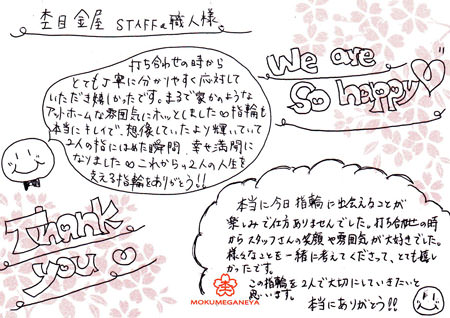 杢目金屋 STAFF&職人様
打ち合わせの時から
とても丁寧に分かりやすく応対して
いただき嬉しかったです。まるで家かのような
アットホームな雰囲気にホッとしました∞指輪も
本当にキレイで、想像していたより輝いていて
2人の指にはめた瞬間、幸せ満開に
なりました∞これからの2人の人生を
支える指輪をありがとう!!
We are
So happy
Thank
you
本当に今日指輪に出会えることが
楽しみで仕方ありませんでした。打ち合せの時
からスタッフさんの笑顔や雰囲気が大好きでした。
様々なことを一緒に考えてくださって、とても嬉し
かったです。
この指輪を2人で大切にしていきたいと
思います。
本当にありがとう!!
MOKUMEGANEYA